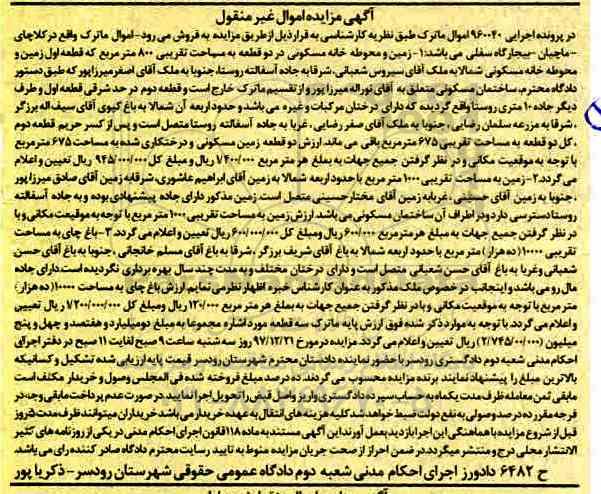 آگهی مزایده اموال غیر منقول
در پرونده اجرایی ۹۶۰۰۴۰ اموال ماترک طبق نظریه کارشناسی به قرار ذیل از طریق مزایده به فروش می رود - اموال ماترک واقع در کلاچای
- ماچیان - بیجارگاه سفلی می باشد: ۱- زمین و محوطه خانه مسکونی در دو قطعه به مساحت تقریبی ۸۰۰ متر مربع که قطعه اول زمین و
محوطه خانه مسکونی شمالا به ملک آقای سیروس شعبانی، شرقا به جاده آسفالته روستا، جنوبا به ملک آقای اصغر میرزاپور که طبق دستور
دادگاه محترم، ساختمان مسکونی متعلق به آقای نوراله میرزا پور و از تقسیم ماترک خارج است و قطعه دوم در حد شرقی قطعه اول و طرف
دیگر جاده ۱۰ متری روستا واقع گردیده که دارای درختان مرکبات و غیره می باشد و حدود اربعه آن شمالا به باغ کیوی آقای سیف اله برزگر
، شرقا به مزرعه سلمان رضایی ، جنوبا به ملک آقای صفر رضایی ، غربا به جاده آسفالته روستا متصل است و پس از کسر حریم قطعه دوم
، کل دو قطعه به مساحت تقریبی ۶۷۵ مترمربع باقی می ماند. ارزش دو قطعه زمین مسکونی و درختکاری شده به مساحت ۶۷۵ متر مربع
با توجه به موقعیت مکانی و در نظر گرفتن جمیع جهات به مبلغ هر متر مربع ۱/۴۰۰/۰۰۰ ریال و مبلغ کل ۹۴۵/۰۰۰/۰۰۰ ریال تعیین و اعلام
می گردد. ۲- زمین به مساحت تقریبی ۱۰۰۰ متر مربع با حدود اربعه شمالا به زمین آقای ابراهیم عاشوری، شرقا به زمین آقای صادق میرزاپور
، جنوبا به زمین آقای حسینی ، غربا به زمین آقای مختار حسینی متصل است. زمین مذکور دارای جاده پیشنهادی بوده و به جاده آسفالته
روستا دسترسی دارد و در اطراف آن ساختمان مسکونی می باشد. ارزش زمین به مساحت تقریبی ۱۰۰۰ متر مربع با توجه به موقعیت مکانی و با
در نظر گرفتن جمیع جهات به مبلغ هر متر مربع ۶۰۰/۰۰۰ ریال و مبلغ کل ۶۰۰/۰۰۰/۰۰۰ ریال تعیین و اعلام می گردد. ۳- باغ چای به مساحت
تقریبی ۱۰۰۰۰ (ده هزار) متر مربع با حدود اربعه شمالا به باغ آقای شریف برزگر ، شرقا به باغ آقای مسلم خانجانی ، جنوبا به باغ آقای حسن
شعبانی و غربا به باغ آقای حسن شعبانی متصل است و دارای درختان مختلف و به مدت چند سال بهره برداری نگردیده است. دارای جاده
مال رو می باشد و اینجانب در خصوص ملک مذکور به عنوان کارشناس خبره اظهار نظر می نمایم. ارزش باغ چای به مساحت ۱۰۰۰۰ (ده هزار)
متر مربع با توجه به موقعیت مکانی و با در نظر گرفتن جمیع جهات به مبلغ هر متر مربع ۱۲۰/۰۰۰ ریال و مبلغ کل ۱/۲۰۰/۰۰۰/۰۰۰ ریال تعیین
و اعلام می گردد. با توجه به موارد ذکر شده فوق ارزش پایه ماترک سه قطعه مورد اشاره مجموعا به مبلغ دو میلیارد و هفتصد و چهل و پنج
میلیون (۲/۷۴۵/۰۰۰/۰۰۰) ریال تعیین و اعلام می گردد. مزایده در مورخ ۹۷/۱۲/۲۱ روز سه شنبه ساعت ۹ صبح لغایت ۱۱ صبح در دفتر اجرای
احکام مدنی شعبه دوم دادگستری رودسر با حضور نماینده دادستان محترم شهرستان رودسر قیمت پایه ارزیابی شده تشکیل و کسانیکه
بالاترین مبلغ را پیشنهاد نمایند برنده مزایده محسوب می گردند. ده درصد مبلغ فروخته شده فی المجلس وصول و خریدار مکلف است
مابقی ثمن معامله ظرف مدت یکماه به حساب سپرده دادگستری واریز و اصل قبض را تحویل اجرا نمایید. در صورت عدم پرداخت مابقی وجه، در
فرجه مقرر ده درصد وصولی به نفع دولت ضبط خواهد شد. کلیه هزینه های انتقال به عهده خریدار می باشد خریداران میتوانند ظرف مدت ۵ روز
قبل از شروع مزایده با هماهنگی این اجرا بازدید بعمل آورند این آگهی مستند به ماده ۱۱۸ قانون اجرای احکام مدنی در یکی از روزنامه های کثیر
الانتشار محلی درج و منتشر میگردد. در ضمن احراز از صحت جریان مزایده منوط به تایید رسایت محترم دادگاه صادر کننده رای می باشد
ح ۶۴۸۲ دادورز اجرای احکام مدنی شعبه دوم دادگاه عمومی حقوقی شهرستان رودسر - ذکریا پور